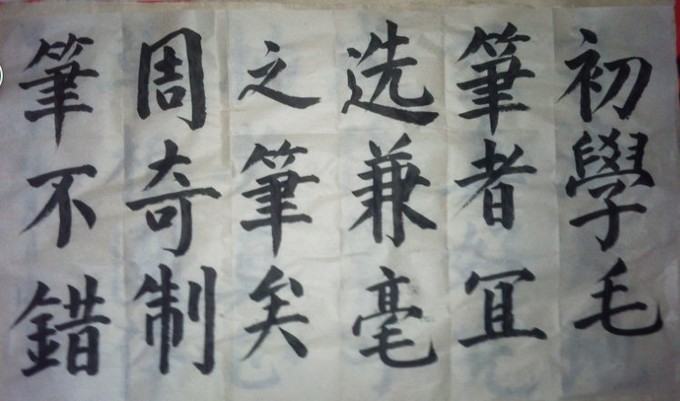 初學毛
筆者冝
选兼毫
之筆矣
周奇制
筆不錯